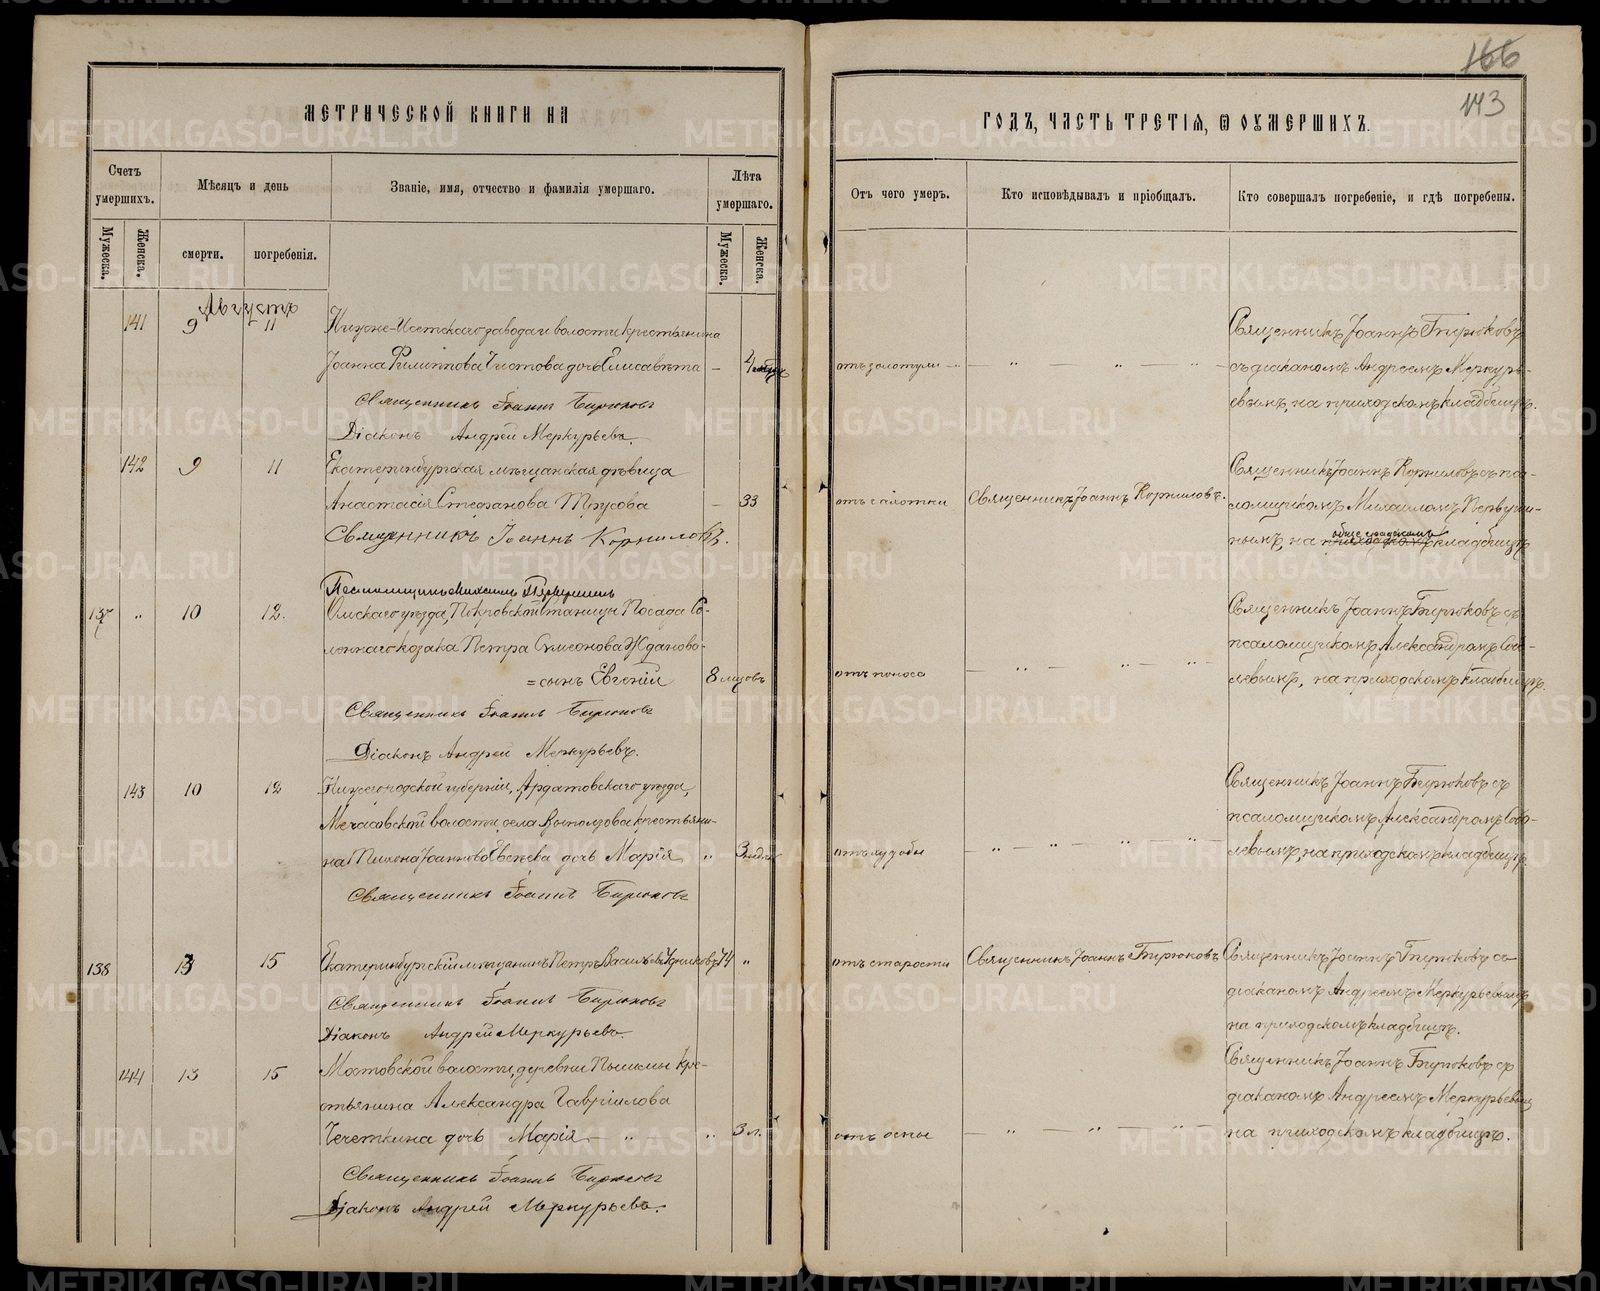 166
143
МЕТРИЧЕСКОЙ КНИГИ НА
ГОДЪ, ЧАСТЬ ТРЕТІЯ, Ѿ ОУМЕРШИХЪ.
Счетъ умершихъ.
Мужеска.
Женска.
Мѣсяцъ и день
смерти.
погребенія.
Званіе, имя, отчество и фамилія умершаго.
Лѣта умершаго.
Мужеска.
Женска.
Отъ чего умеръ.
Кто исповѣдывалъ и пріобщалъ.
Кто совершалъ погребеніе, и гдѣ погребены.
Августъ
141 9 11 Нижне-Исетскаго завода и волости крестьянина
Іоанна Филиппова Чистова дочь Елисавета — 4
отъ золотухи — „ — „ —
Священникъ Іоаннъ Бирюковъ
съ діакономъ Андреемъ Меркурь-
евымъ, на приходскомъ кладбищѣ.
Священникъ Іоаннъ Бирюковъ
Діаконъ Андрей Меркурьевъ.
142 9 11 Екатеринбургская мѣщанская дѣвица
Анастасія Стефанова Трусова — 33
отъ чахотки
Священникъ Іоаннъ Корниловъ.
Священникъ Іоаннъ Корниловъ съ пса-
ломщикомъ Михаиломъ Первуши-
нымъ, на общеградскомъ кладбищѣ
Священникъ Іоаннъ Корниловъ.
Псаломщикъ Михаилъ Первушинъ
137 „ 10 12. Омскаго уѣзда, Покровской станицы Посада Со-
леннаго козака Петра Симеонова Жданова
= сынъ Евгеній 8 мцовъ
отъ поноса — „ — „ — „
Священникъ Іоаннъ Бирюковъ съ
псаломщикомъ Александромъ Собо-
левымъ, на приходскомъ кладбищѣ.
Священникъ Іоаннъ Бирюковъ
Діаконъ Андрей Меркурьевъ.
143 10 12 Нижегородской губерніи, Ардатовскаго уѣзда,
Мечасовской волости, села Выползова крестьяни-
на Пимена Іоаннова дочь Марія „ 3 недѣл
отъ худобы — „ — „ — „ — „
Священникъ Іоаннъ Бирюковъ съ
псаломщикомъ Александромъ Собо-
левымъ, на приходскомъ кладбищѣ
Священникъ Іоаннъ Бирюковъ
138 13 15 Екатеринбургскій мѣщанинъ Петръ Васильевъ 74 „
отъ старости
Священникъ Іоаннъ Бирюковъ.
Священникъ Іоаннъ Бирюковъ съ
діакономъ Андреемъ Меркурьевымъ
на приходскомъ кладбищѣ.
Священникъ Іоаннъ Бирюковъ
Діаконъ Андрей Меркурьевъ.
144 13 15 Мостовской волости, деревни Пышмы кре-
стьянина Александра Гавріилова
Чечеткина дочь Марія — „ — „ 3 л.
отъ оспы — „ — „ — „ —
Священникъ Іоаннъ Бирюковъ съ
діакономъ Андреемъ Меркурьевымъ
на приходскомъ кладбищѣ.
Священникъ Іоаннъ Бирюковъ
Діаконъ Андрей Меркурьевъ.
METRIKI.GASO-URAL.RU